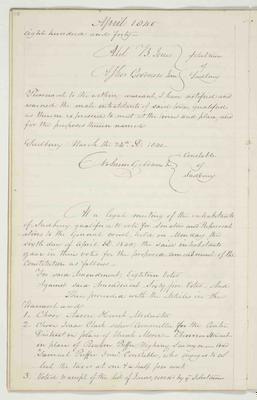 April 1840
eight hundred and forty
Abel B. Jones } Selectmen
of
Sudbury
Pursuant to the within warrant, I have notified and
warned the male inhabitants of said town qualified
as therein expressed to meet at the time and place, and
for the purposes therein named
Sudbury March the 24th D. 1840.
Constable
of
Sudbury
At a legal meeting of the inhabitants
of Sudbury qualified to vote for Senators and Represent
atives to the General Court, held on Monday, the
sixth day of April D. 1840; the said inhabitants
gave in their votes for the proposed amendment of the
Constitution as follows.
For said Amendment, Eighteen Votes
Against said Amendment, Sixty five Votes. And
Then proceeded with the Articles in the
Warrant and
1. Chose Aaron Hunt Moderator
2. Chose Isaac Clark school Committee for the Centre
District in place of
in place of Reuben Puffer
Samuel Puffer Constable, who engages to col
lect the taxes at one &amp; a half per cent
3. Voted to accept of the list of Jurors, revised by ye Selectmen